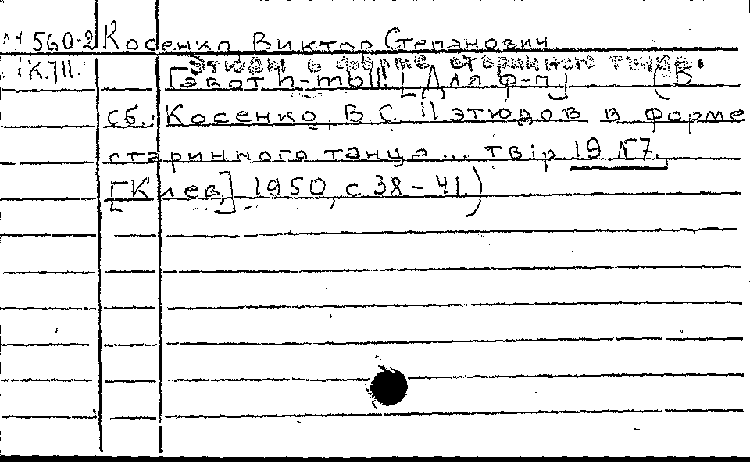 М 560-2 Косенко, Виктор Степанович
Этюды в форме старинного танца.
К.111. Гавот h-moll. [Для ф-п] (В
сб.: Косенко, В С. 11 этюдов в форме
старинного танца... твір 19 №7.
[Киев], 1950, с 38-41.)